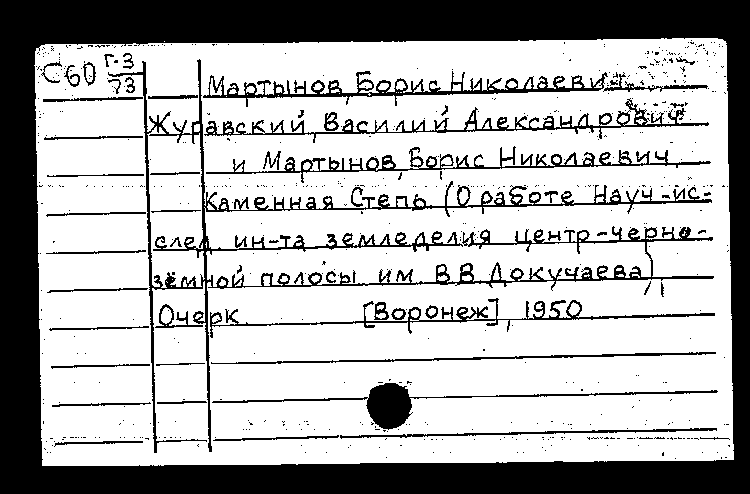 С60 Г-3
73
Мартынов, Борис Николаевич
Журавский, Василий Александрович
и Мартынов, Борис Николаевич
Каменная Степь (О работе Науч-ис-
след. ин-та земледелия центр-черно-
зёмной полосы им. В.В. Докучаева)
Очерк [Воронеж], 1950